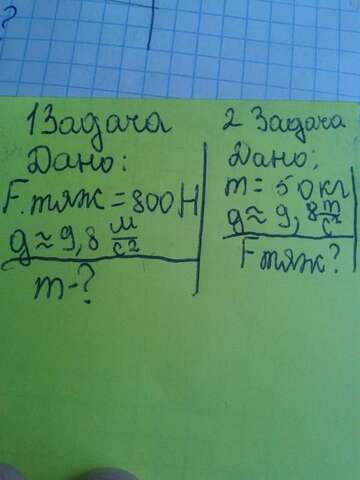 ?
1 Задача
Дано:
F.тяж = 800 Н
g ≈ 9,8 м/с²
m - ?
2 Задача
Дано;
m = 50 кг
g ≈ 9, 8 m/с²
F тяж ?